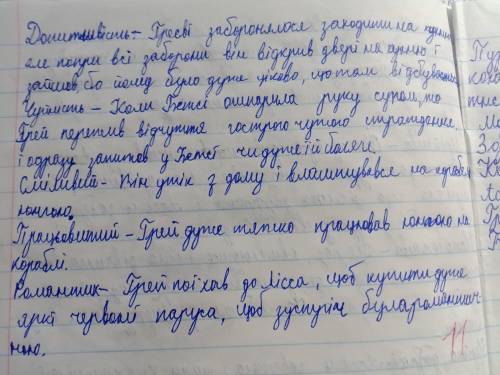 Допитливість - Греєві заборонялося заходити на кухню
але попри всі заборони він відкрив двері на кухню і
зайшов, бо йому було дуже цікаво, що там відбувається
Чуйність - Коли Бетсі ошпарила руку супом, то
Грей пережив відчуття гострого чужого страждання.
і одразу запитав у Бетсі чи дуже їй боляче.
Сміливий - Він утік з дому і влаштувався на корабель
юнгою.
Працьовитий - Грей дуже тяжко працював юнгою на
кораблі.
Романтик - Грей поїхав до Лісса, щоб купити дуже
яркі червоні паруса, щоб зустріч була романтич
ною.
11